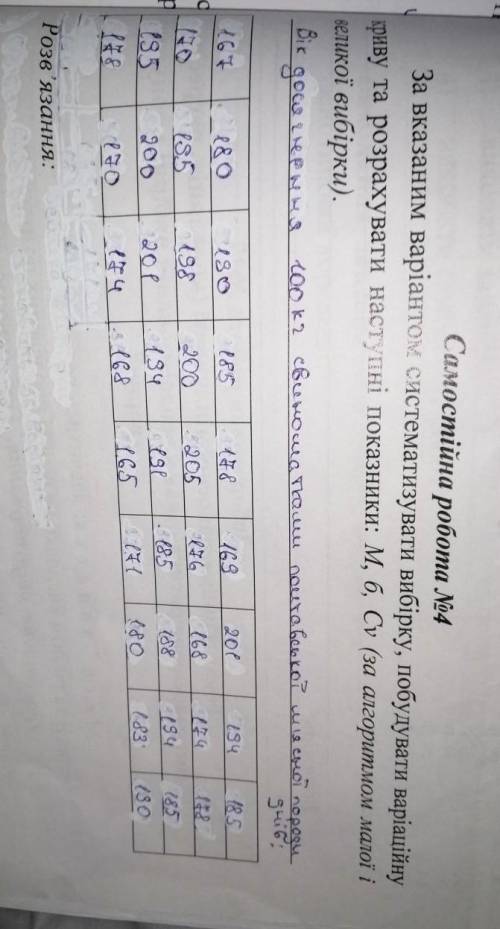 Самостійна робота №4
За вказаним варіантом систематизувати вибірку, побудувати варіаційну
криву та розрахувати наступні показники: М, б, Cv (за алгоритмом малої і
великої вибірки).
Вік досягнення 100 кг свиноматками полтавської мясної породи
днів:
167 180 190 185 178 169 201 194 185
170 195 198 200 205 176 168 174 178
195 200 201 194 191 185 188 194 185
178 170 174 168 165 171 180 183 190
Розв'язання: